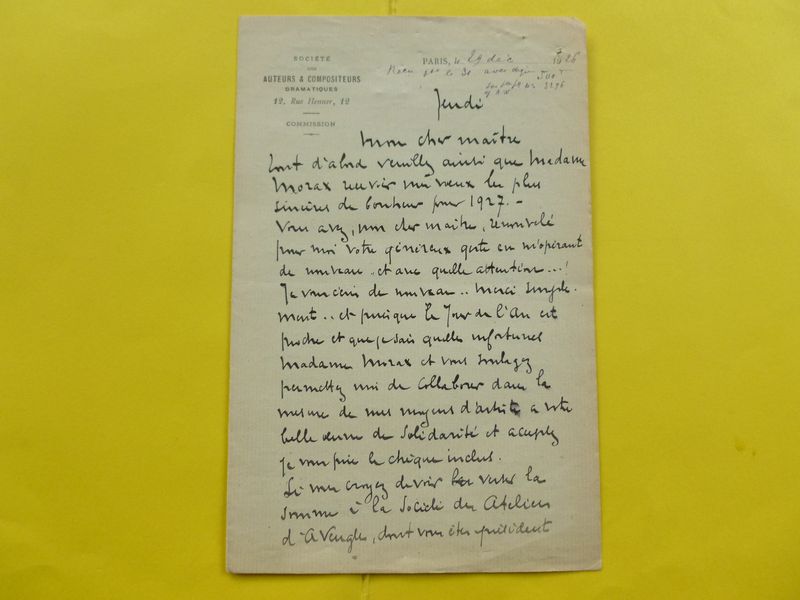 SOCIÉTÉ
DES
AUTEURS & COMPOSITEURS
DRAMATIQUES
12, Rue Henner, 12
COMMISSION
PARIS, le 29 déc 1926
Reçu le 30 avec chèque
Jeudi
Mon cher maître
Tout d'abord veuillez ainsi que Madame
Morax recevoir mes vœux les plus
sincères de bonheur pour 1927. -
Vous avez, mon cher maître, renouvelé
pour moi votre généreux geste en m'opérant
de nouveau .. et avec quelle attention ... !
Je vous écris de nouveau .. merci simple-
ment .. et puisque le Jour de l'An est
proche et que je sais quelles infortunes
Madame Morax et vous soulagez
permettez moi de collaborer dans la
mesure de mes moyens d'artiste a votre
belle œuvre de Solidarité et acceptez
je vous prie le chèque inclus.
Si vous croyez devoir verser la
somme à la Société des Ateliers
d'Aveugles, dont vous êtes président